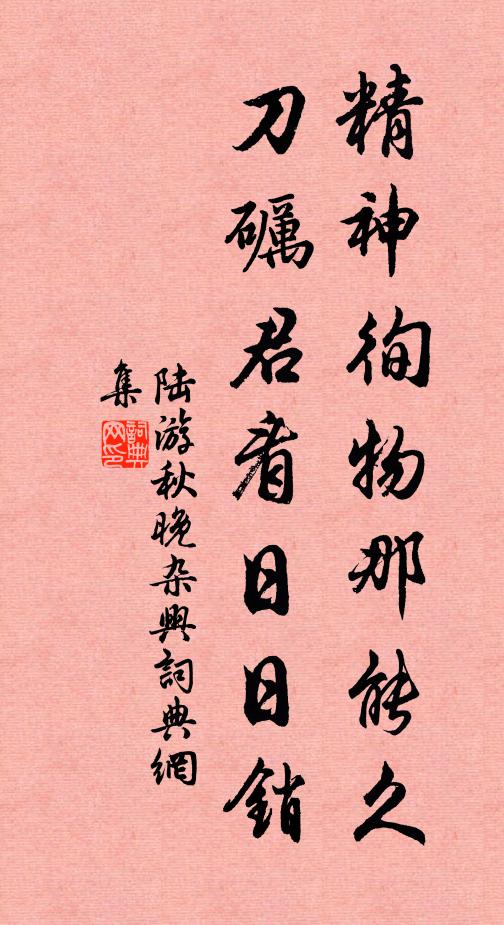 精神徇物那能久
刀礪君看日日銷
陆游秋晚杂興詞典網
集
詞典网印